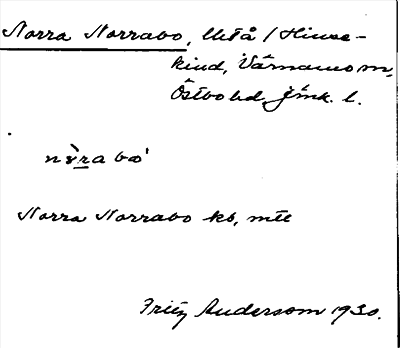 Norra Norrabo, Uttå / Hinse-
kind, Värnamo m,
Östbo hd, Jönk. l.
nò̀rabo'
Norra Norrabo kb, mtl
Fritz Anderson 1930.